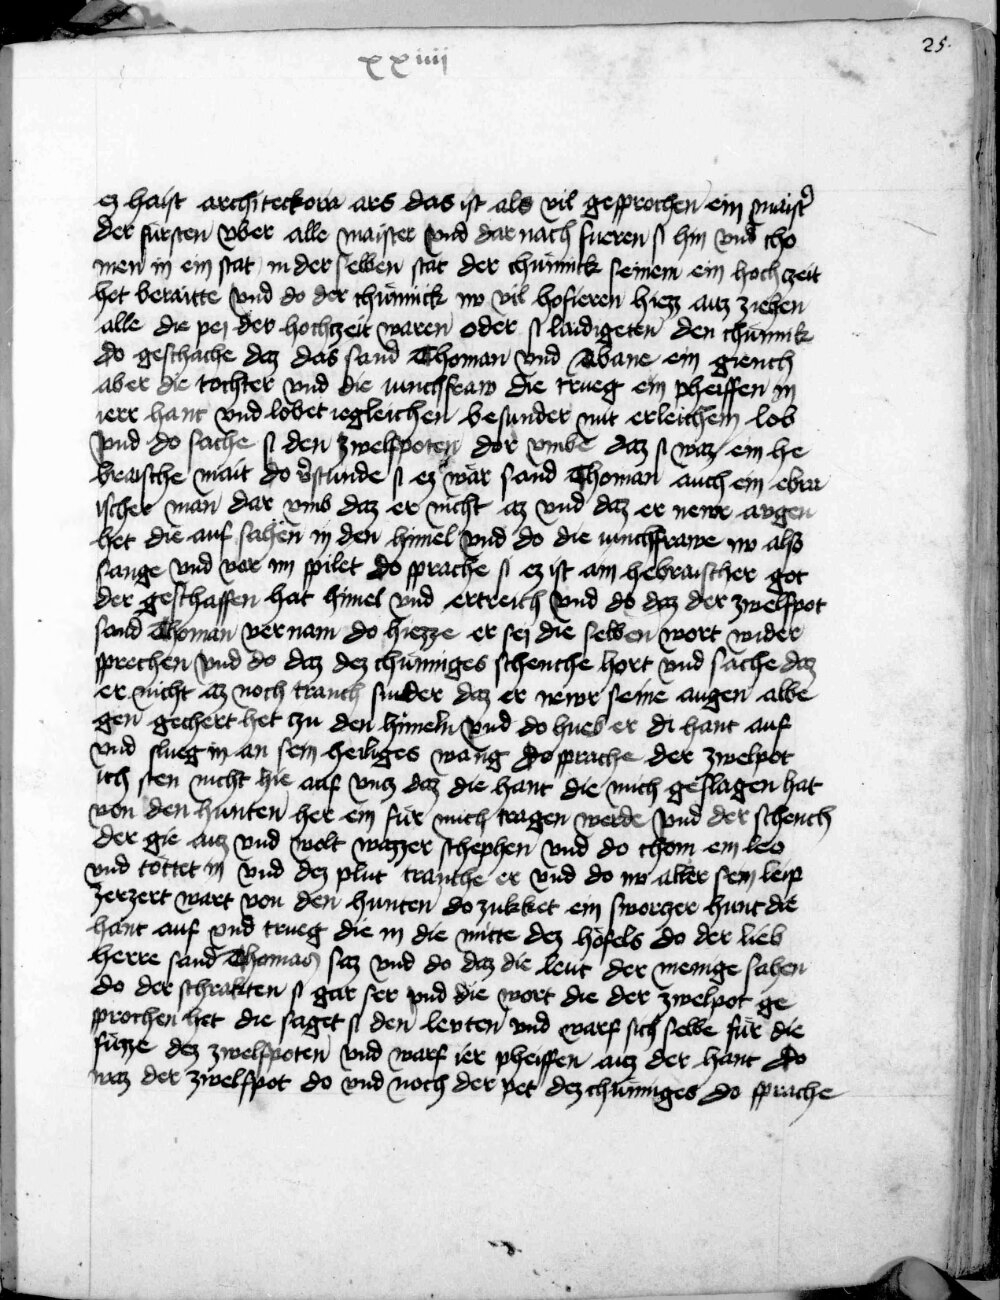 25.
xxiiij
ez haist architeckora ars das ist als vil gesprochen ein maist̾
der fürsten vber alle maister vnd dar nach füeren si hin vnd cho
men in ein stat in der selben stat der chünnick seinem ein hochczeit
het beraitte vnd do der chünnick nv vil hofieren hiezz auz ziehen
alle die pei der hochczeit waren oder si laidigeten den chünnik
do geschache daz das sand Thoman vnd Abane ein giench
aber die tochter vnd die iunchfraw die trueg ein pheiffen in
ierr hant vnd lobet iegleichen besunder mit erleichem lob
vnd do sache si den zwelfpoten dor vmbe daz si waz ein he
braische mait do v̾stunde si ez wär sand Thoman auch ein ebra
ischer man dar vmb daz er nicht az vnd daz er newr augen
het die auf sahen in den himel vnd do die iunchfrawe nv also
sange vnd vor im spilet do sprache si ez ist am hebraischer got
der geschaffen hat himel vnd ertreich vnd do daz der zwelfpot
sand Thoman vernam do hiezze er sei die selben wort wider
sprechen vnd do daz dez chünniges schenche hort vnd sache daz
er nicht az noch tranch sunder daz er newr seine augen albe
gen gechert het czu den himeln vnd do hueb er di hant auf
vnd slueg in an sein heiliges wang do sprache der zwelpot
ich sten nicht hie auf vncz daz die hant die mich geslagen hat
von den hunten her ein für mich tragen werde vnd der schench
der gie auz vnd wolt wazzer schephen vnd do chom ein leo
vnd töttet in vnd dez plut tranche er vnd do nv aller sein leip
zerzert wart von den hunten do zukket ein sworczer hunt die
hant auf vnd trueg die in die mitte dez höfels do der lieb
herre sand Thomas saz vnd do daz die leut der menige sahen
do der schrakten si gar ser vnd die wort die der zwelpot ge
sprochen het die saget si den levten vnd warf sich selbe für die
füzze dez zwelfpoten vnd warf ier pheiffen auz der hant do
waz der zwelfpot do vnd noch der pet dez chünniges do sprache